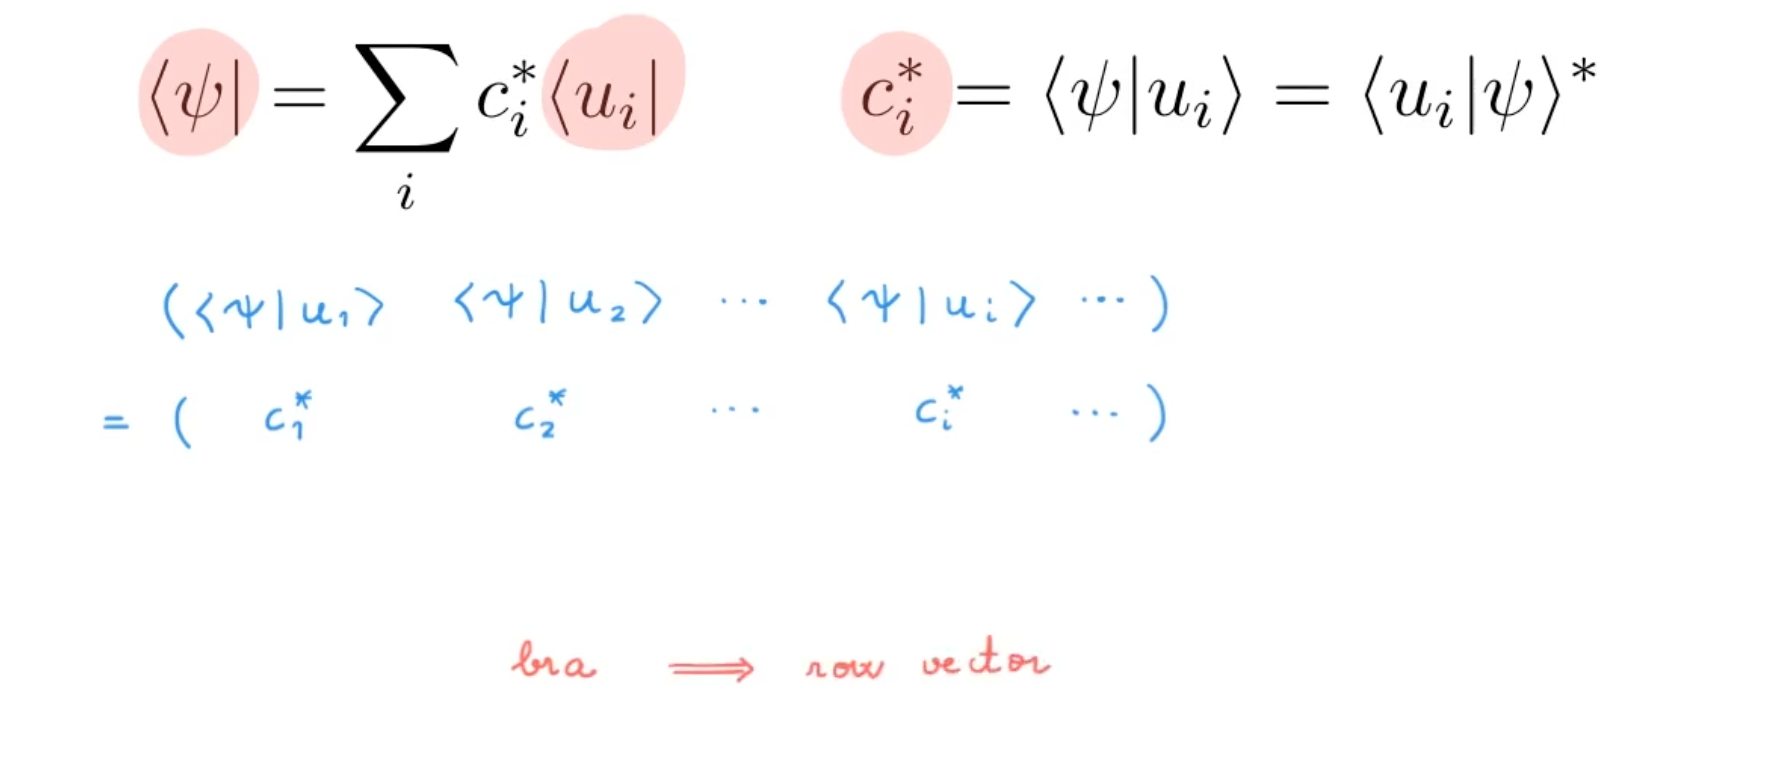 ⟨ψ| = ∑_i c_i^* ⟨u_i|    c_i^* = ⟨ψ|u_i⟩ = ⟨u_i|ψ⟩^*
(⟨ψ|u_1⟩ ⟨ψ|u_2⟩ ⋯ ⟨ψ|u_i⟩ ⋯)
= ( c_1^* c_2^* ⋯ c_i^* ⋯ )
bra ⟹ row vector